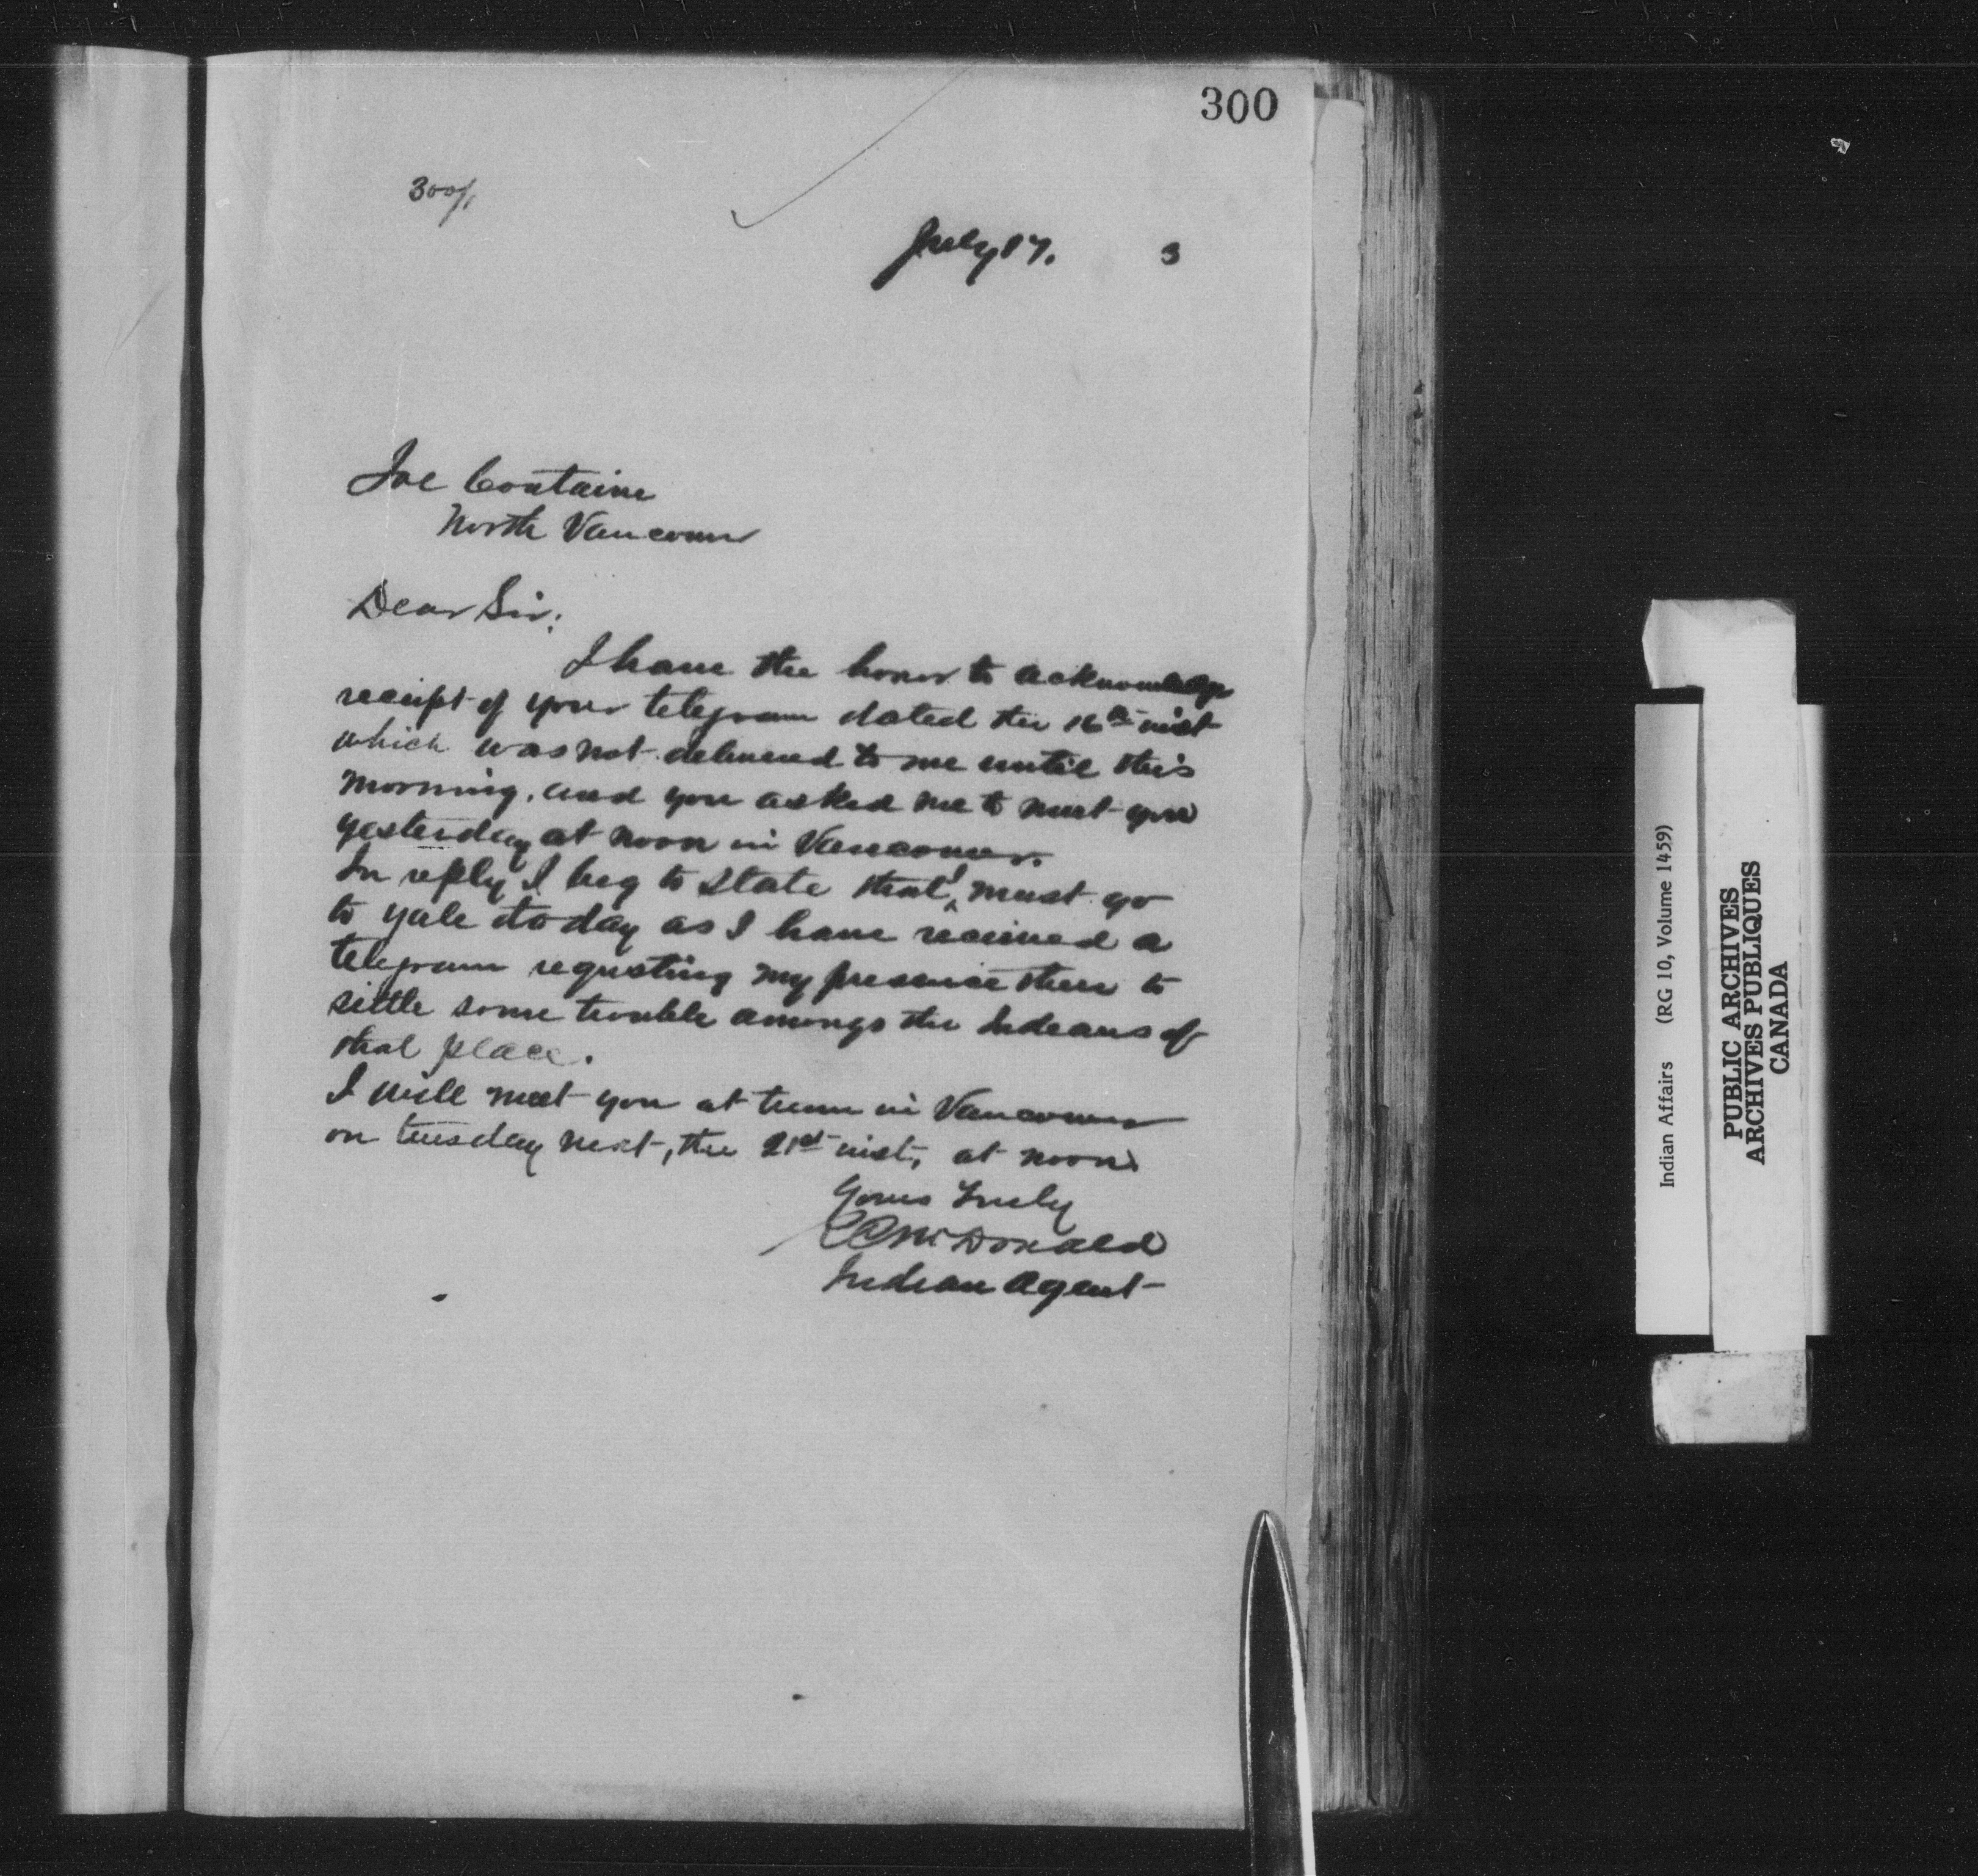 300
300/1
July 17. 3
Joe Containe
North Vancouver
Dear Sir:
I have the honor to acknowledge
receipt of your telegram dated the 16th inst
which was not delivered to me until this
morning, and you asked me to meet you
yesterday at noon in Vancouver.
In reply I beg to state that I must go
to Yale today as I have received a
telegram requsting my presence there to
sittle some trouble amongs the Indians of
that place.
I will meet you at in Vancouver
on tuesday next, the 21st inst, at noon.
Yours truly
McDonald
Indian Agent
Indian Affairs (RG 10, Volume 1459)
PUBLIC ARCHIVES
ARCHIVES PUBLIQUES
CANADA